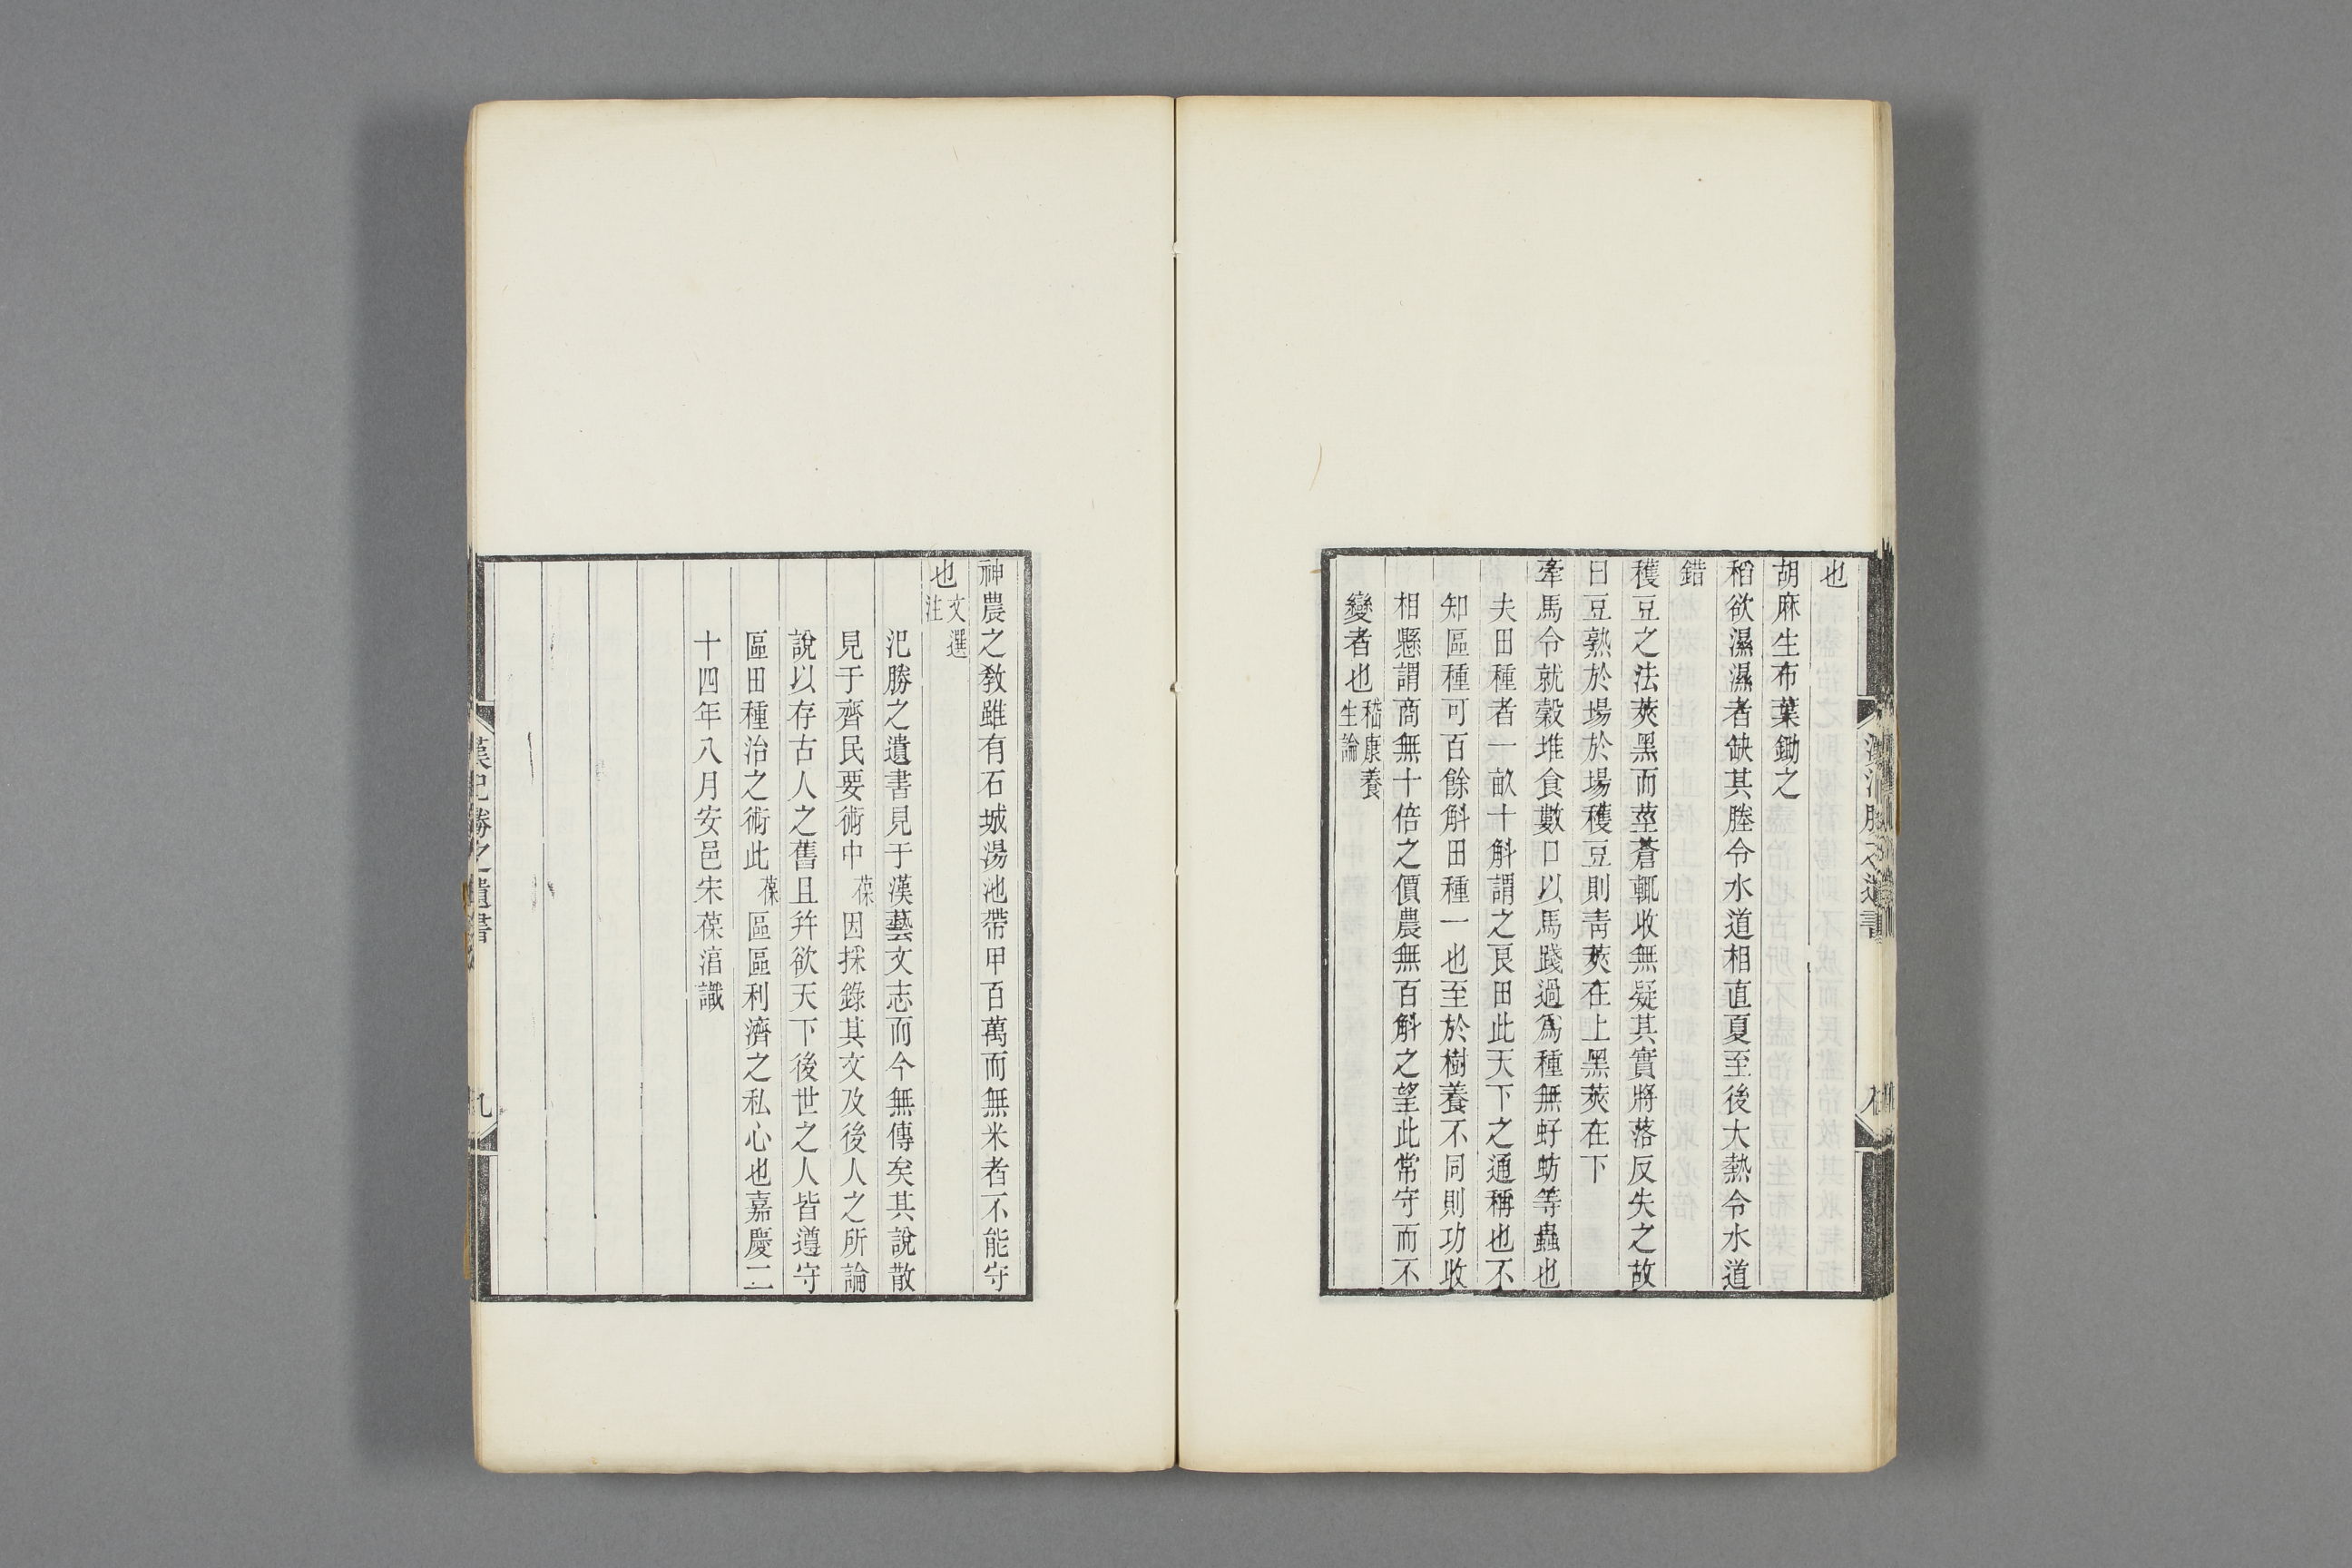 也
胡麻生布葉鋤之
稻欲濕濕者缺其塍令水道相直夏至後大熱令水道
錯
穫豆之法莢黑而莖蒼輒收無疑其實將落反失之故
曰豆熟於場於場穫豆則靑莢在上黑莢在下
牽馬令就穀堆食數口以馬踐過爲種無虸蚄等蟲也
夫田種者一畝十斛謂之良田此天下之通稱也不
知區種可百餘斛田種一也至於樹養不同則功收
相懸謂商無十倍之價農無百斛之望此常守而不
變者也嵇康養生論
神農之敎雖有石城湯池帶甲百萬而無米者不能守
也文選注
氾勝之遺書見于漢藝文志而今無傳矣其說散
見于齊民要術中葆因採錄其文及後人之所論
說以存古人之舊且幷欲天下後世之人皆遵守
區田種治之術此葆區區利濟之私心也嘉慶二
十四年八月安邑宋葆淳識
漢氾勝之遺書
九